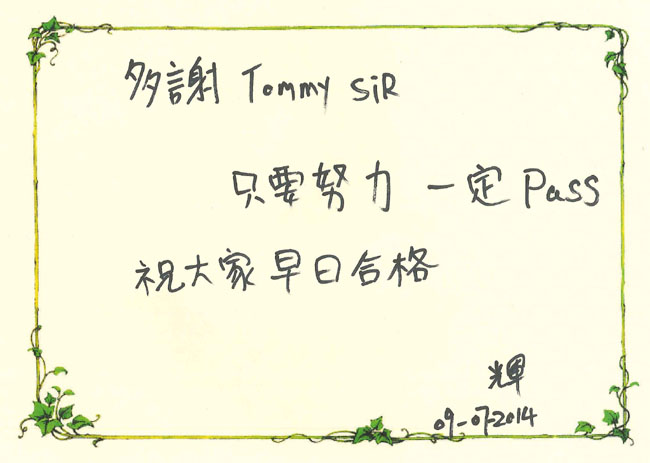 多謝 Tommy SiR
只要努力 一定 Pass
祝大家早日合格
輝
09-07-2014